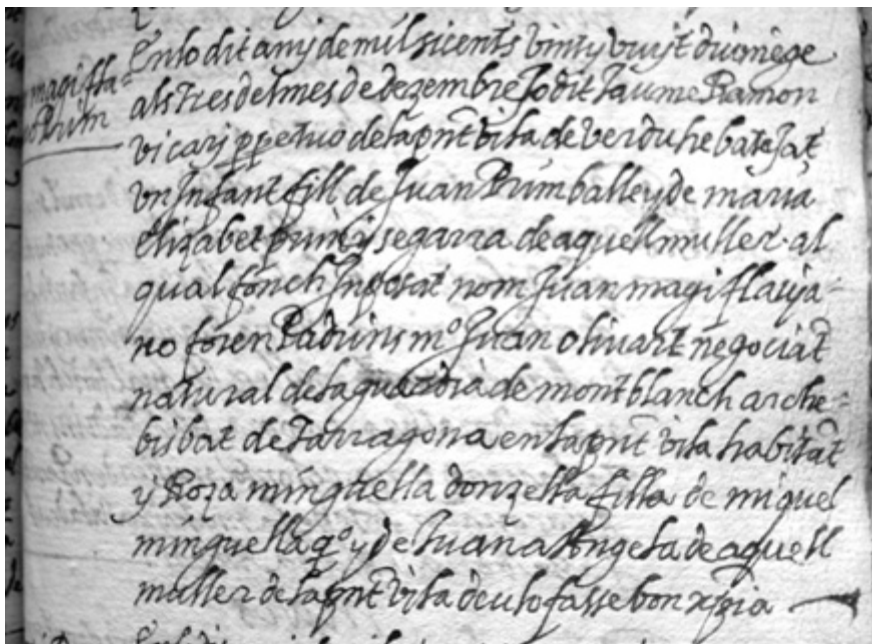 En lo dit any de mil sicents vint y vuyt diumẽge
als tres del mes de dezembre Jo dit Jaume Ramon
vicari ꝑpetuo de la pñt vila de verdu he batejat
vn Infant fill de Juan Prim balle y de maria
Elizabet prim y segarra de aquell muller. al
qual fonch Inposat nom Juan magi flavia=
no foren Padrins m.º Juan olivart negociãt
natural de la guardia de montblanch arche=
bisbat de Tarragona en la pñt vila habitãt
y Roza minguella donzella filla de miquel
minguella qº. y de Juana Angela de aquell
muller de la pñt vila deu lo fasse bon xp̃ia
magi fla=
Prim